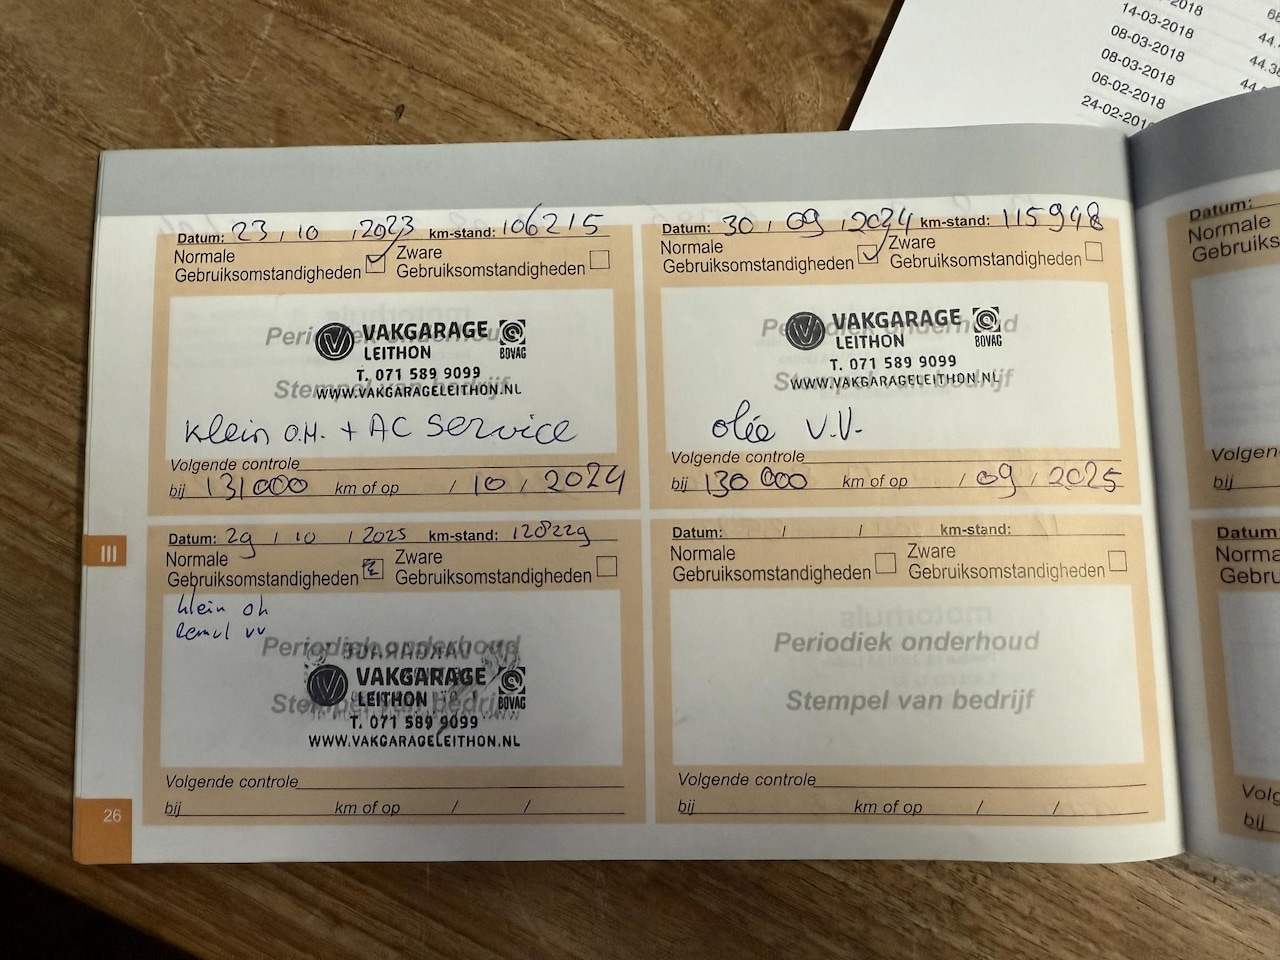 14-03-2018
08-03-2018
08-03-2018
06-02-2018
Datum: 23 / 10 / 2023 km-stand: 106215
Normale Gebruiksomstandigheden Zware Gebruiksomstandigheden
Periodiek onderhoud
VAKGARAGE
LEITHON
BOVAG
T. 071 589 9099
Stempel van bedrijf
WWW.VAKGARAGELEITHON.NL
Klein O.H. + AC Service
Volgende controle
bij 131000 km of op / 10 / 2024
Datum: 30 / 09 / 2024 km-stand: 115948
Normale Gebruiksomstandigheden Zware Gebruiksomstandigheden
Periodiek onderhoud
VAKGARAGE
LEITHON
BOVAG
T. 071 589 9099
Stempel van bedrijf
WWW.VAKGARAGELEITHON.NL
olie V.V.
Volgende controle
bij 130 000 km of op / 09 / 2025
III
Datum: 29 / 10 / 2025 km-stand: 128229
Normale Gebruiksomstandigheden Zware Gebruiksomstandigheden
klein oh
vv
Periodiek onderhoud
VAKGARAGE
LEITHON
BOVAG
Stempel van bedrijf
T. 071 589 9099
WWW.VAKGARAGELEITHON.NL
Volgende controle
bij km of op / /
Datum: / / km-stand:
Normale Gebruiksomstandigheden Zware Gebruiksomstandigheden
Periodiek onderhoud
Stempel van bedrijf
Volgende controle
bij km of op / /
26
Datum:
bij
Datum
bij